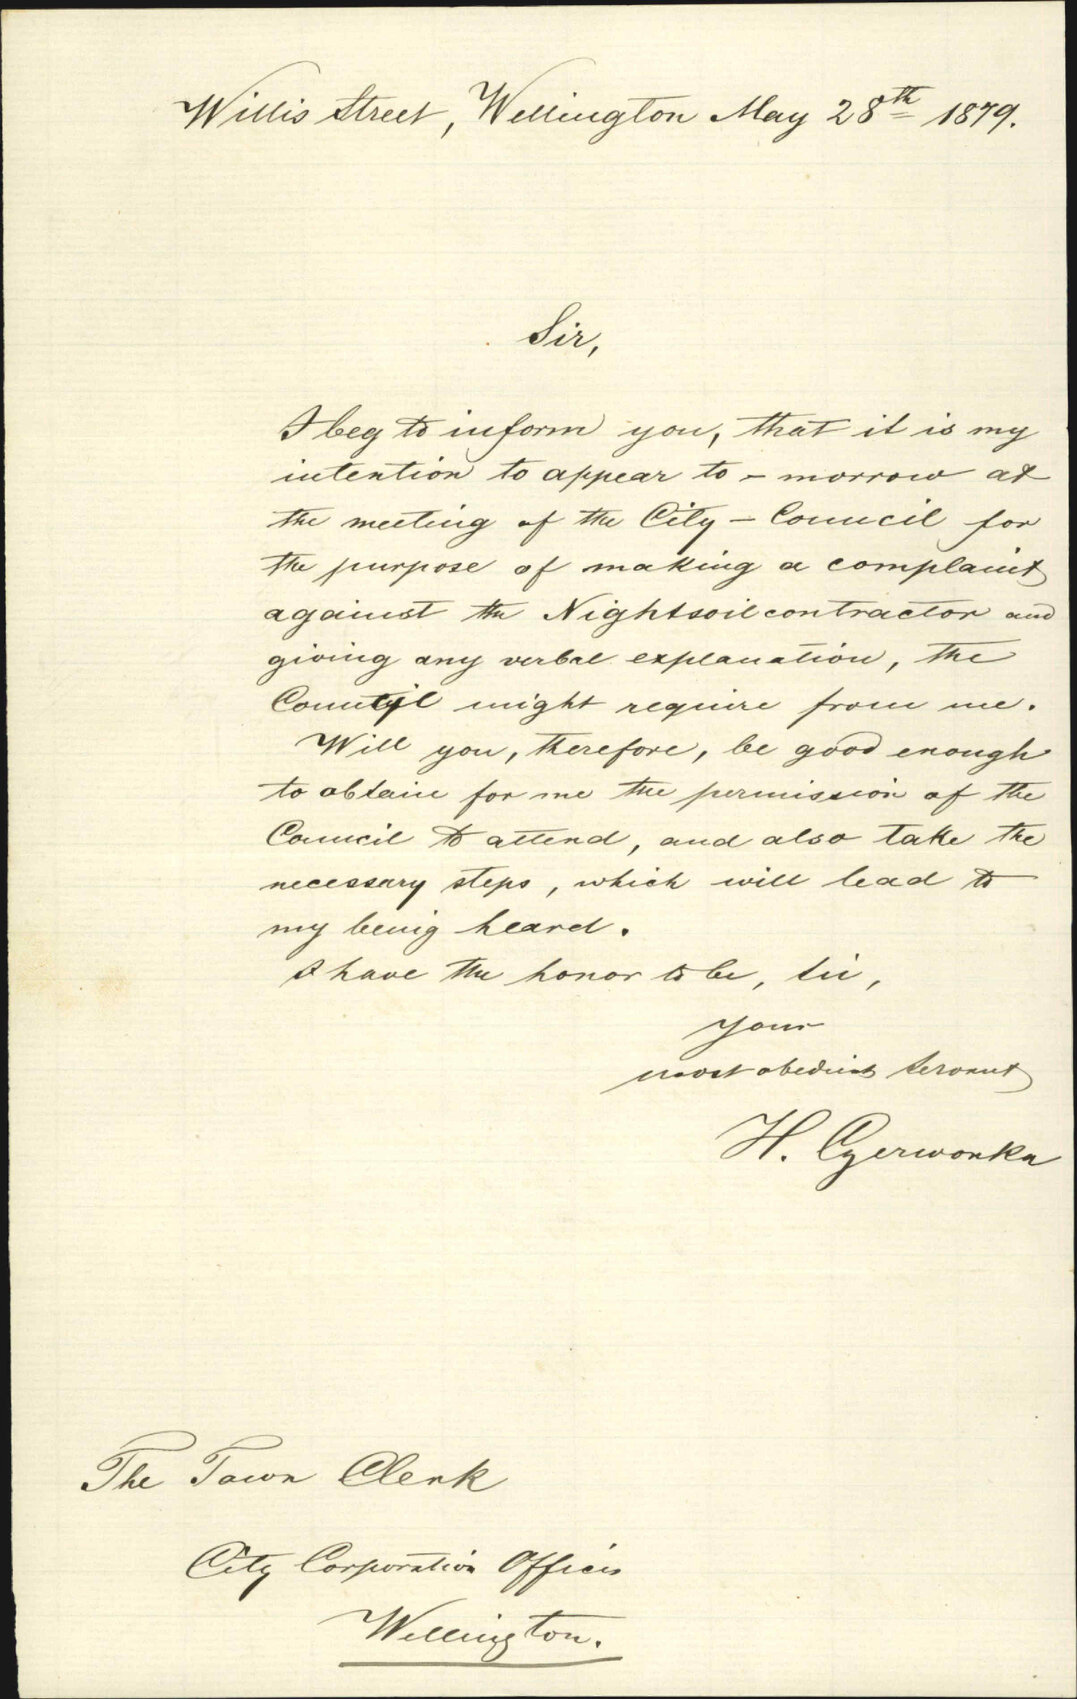 Willis Street, Wellington May 28th 1879.
Sir,
I beg to inform you, that it is my
intention to appear to-morrow at
the meeting of the City-Council for
the purpose of making a complaint
against the Nightsoilcontractor and
giving any verbal explanation, the
Council might require from me.
Will you, therefore, be good enough
to obtain for me the permission of the
Council to attend, and also take the
necessary steps, which will lead to
my being heard.
I have the honor to be, Sir,
your
most obedient servant
H. Czerwonka
The Town Clerk
City Corporation Offices
Wellington.